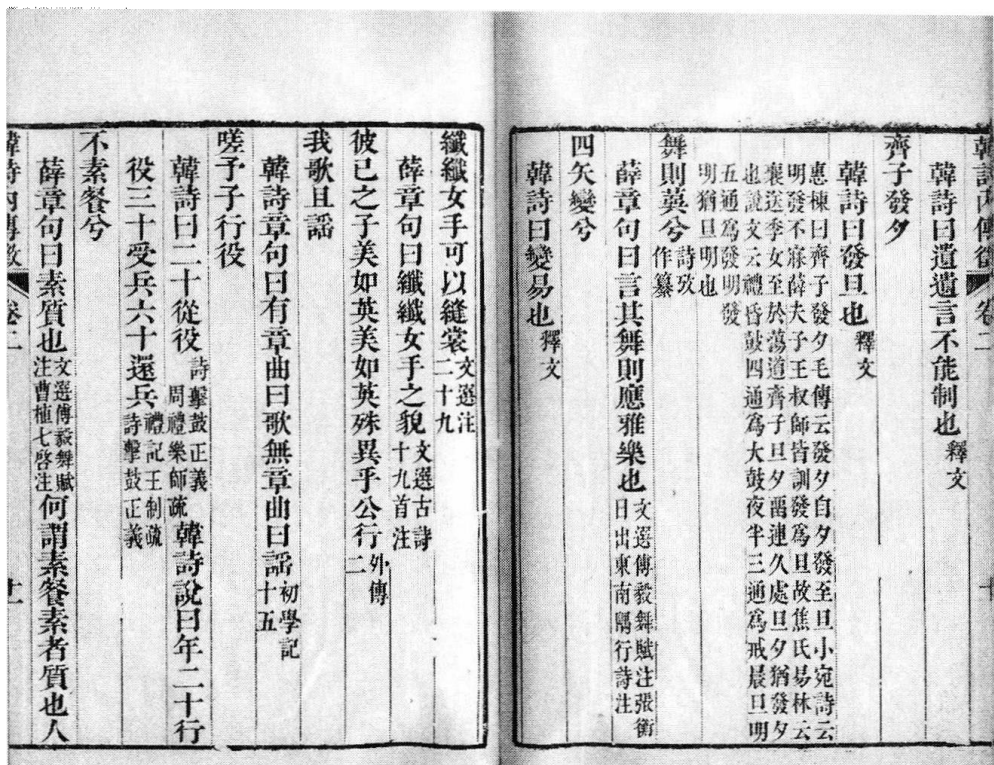 韓詩內傳徵 卷二 十
韓詩曰遺遺言不能制也釋文
齊子發夕
韓詩曰發旦也釋文
惠棟曰齊子發夕毛傳云發夕自夕發至旦小宛詩云
明發不寐薛夫子王叔師皆訓發爲旦故焦氏易林云
襄送季女至於蕩道齊子旦夕畱連久處旦夕猶發夕
也說文云禮昏鼓四通爲大鼓夜半三通爲戒晨旦明
五通爲發明發
明猶旦明也
舞則䔤兮詩攷作纂
薛章句曰言其舞則應雅樂也文選傅毅舞賦注張衡日出東南隅行詩注
四矢變兮
韓詩曰變易也釋文
纖纖女手可以縫裳文選注二十九
薛章句曰纖纖女手之貌文選古詩十九首注
彼已之子美如英美如英殊異乎公行外傳二
我歌且謡
韓詩章句曰有章曲曰歌無章曲曰謡初學記十五
嗟予子行役
韓詩曰二十從役詩擊鼓正義周禮樂師疏韓詩說曰年二十行
役三十受兵六十還兵禮記王制疏詩擊鼓正義
不素餐兮
薛章句曰素質也文選傅毅舞賦注曹植七啓注何謂素餐素者質也人
韓詩內傳徵 卷二 十一